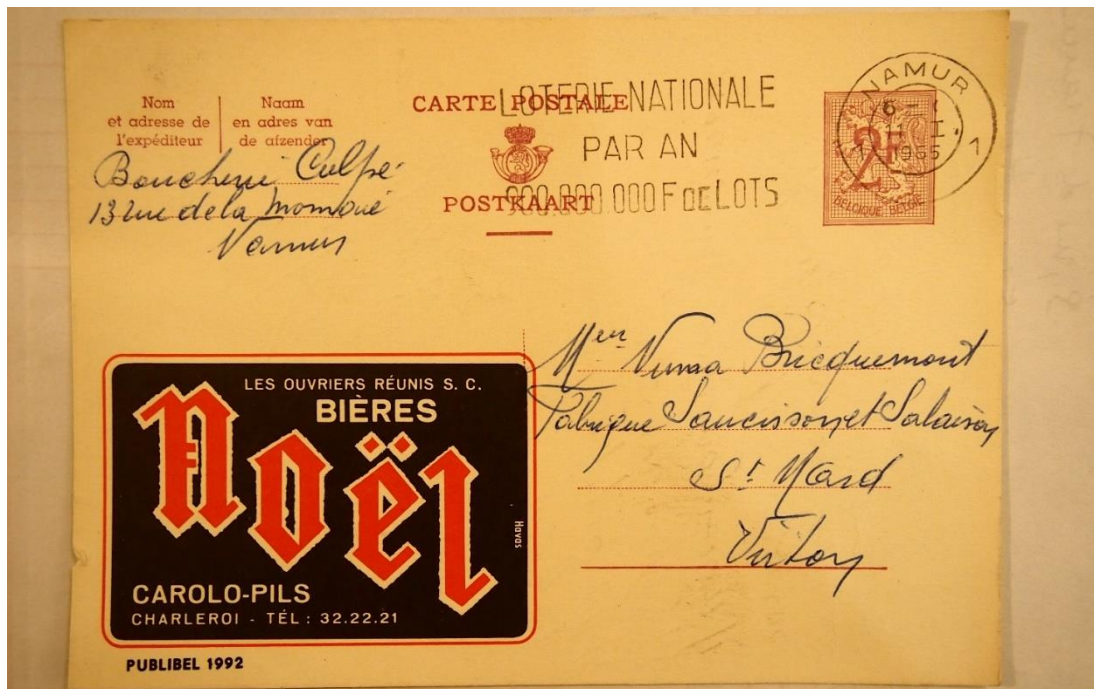 Nom
et adresse de
l'expéditeur
Naam
en adres van
de afzender
Boucherie
13 rue de la
Namur
CARTE POSTALE
POSTKAART
LOTERIE NATIONALE
PAR AN
900.000.000 F DE LOTS
NAMUR
1 1
1965
2F
BELGIQUE BELGIË
Bricquemont
Fabrique Saucisson et Salaison
St Mard
Virton
LES OUVRIERS RÉUNIS S. C.
BIÈRES
Noël
CAROLO-PILS
CHARLEROI - TÉL : 32.22.21
Havas
PUBLIBEL 1992